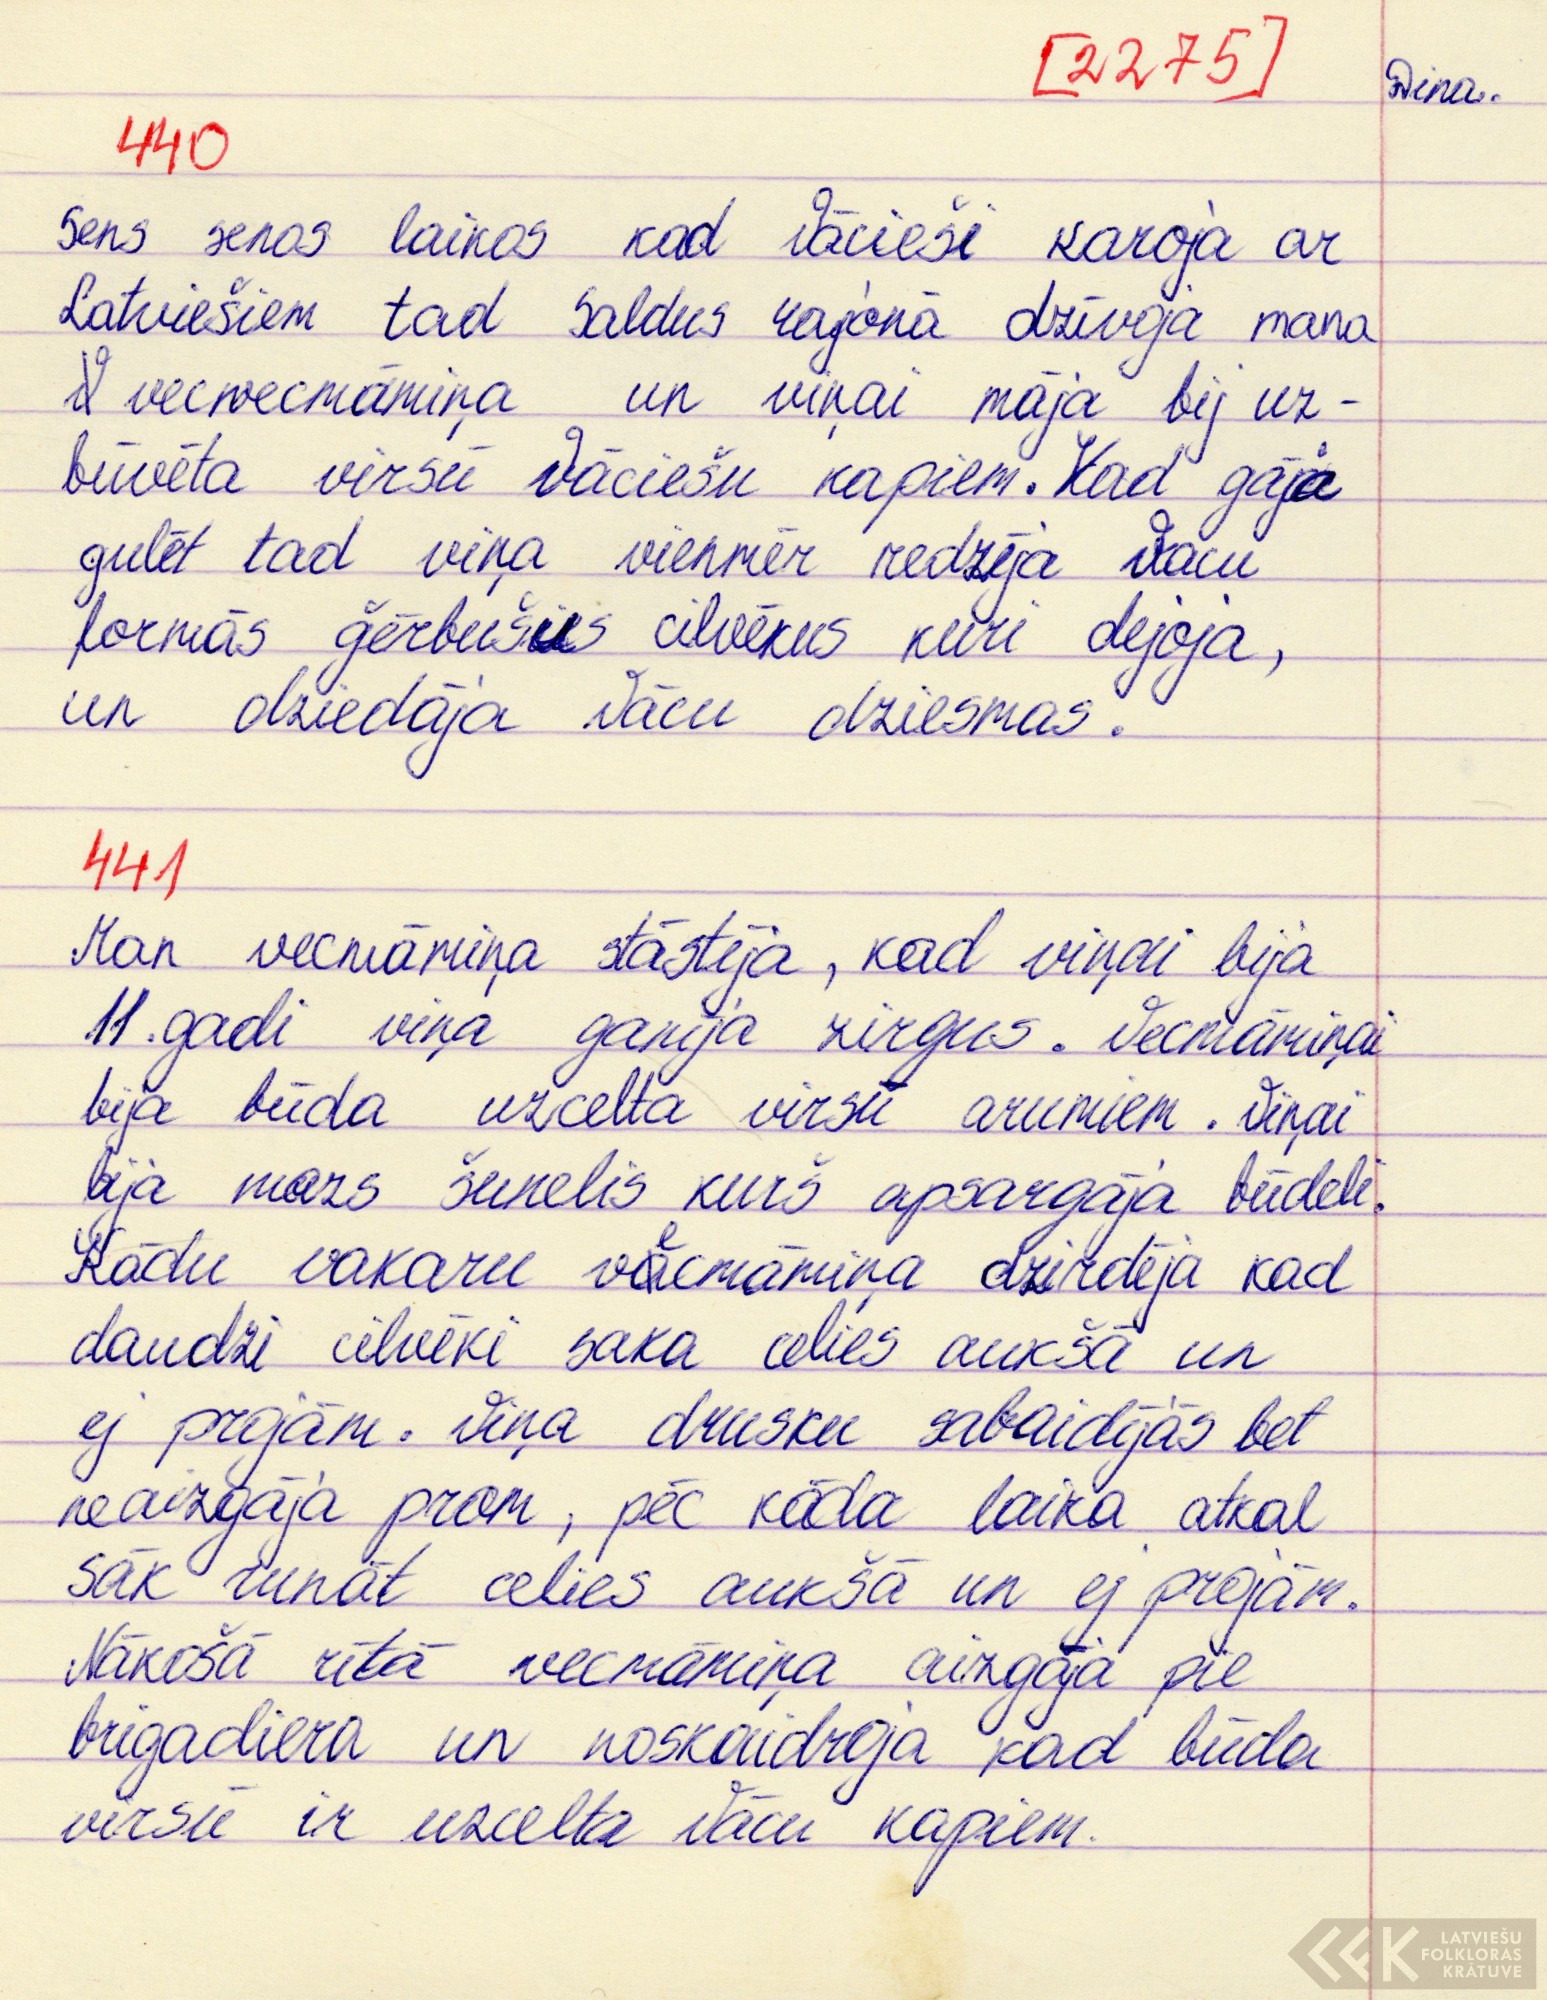 [2275]
Dina.
440
Sens senos laikos kad Vācieši karoja ar
Latviešiem tad Saldus rajonā dzīvoja mana
vecvecmāmiņa un viņai māja bij uz-
būvēta virsū Vāciešu kapiem. Kad gāja
gulēt tad viņa vienmēr redzēja Vācu
formās ģērbušus cilvēkus kuri dejoja,
un dziedāja Vācu dziesmas.
441
Man vecmāmiņa stāstīja, kad viņai bija
11. gadi viņa ganīja zirgus. Vecmāmiņai
bija būda uzcelta virsū arumiem. Viņai
bija mazs šunelis kurš apsargāja būdeli.
Kādu vakaru vecmāmiņa dzirdēja kad
daudzi cilvēki saka celies aukšā un
ej projām. Viņa drusku sabaidījās bet
neaizgāja prom, pēc kāda laika atkal
sāk runāt celies aukšā un ej projām.
Nākošā rītā vecmāmiņa aizgāja pie
brigadiera un noskaidroja kad būda
virsū ir uzcelta Vācu kapiem.
LATVIEŠU
FOLKLORAS
KRĀTUVE